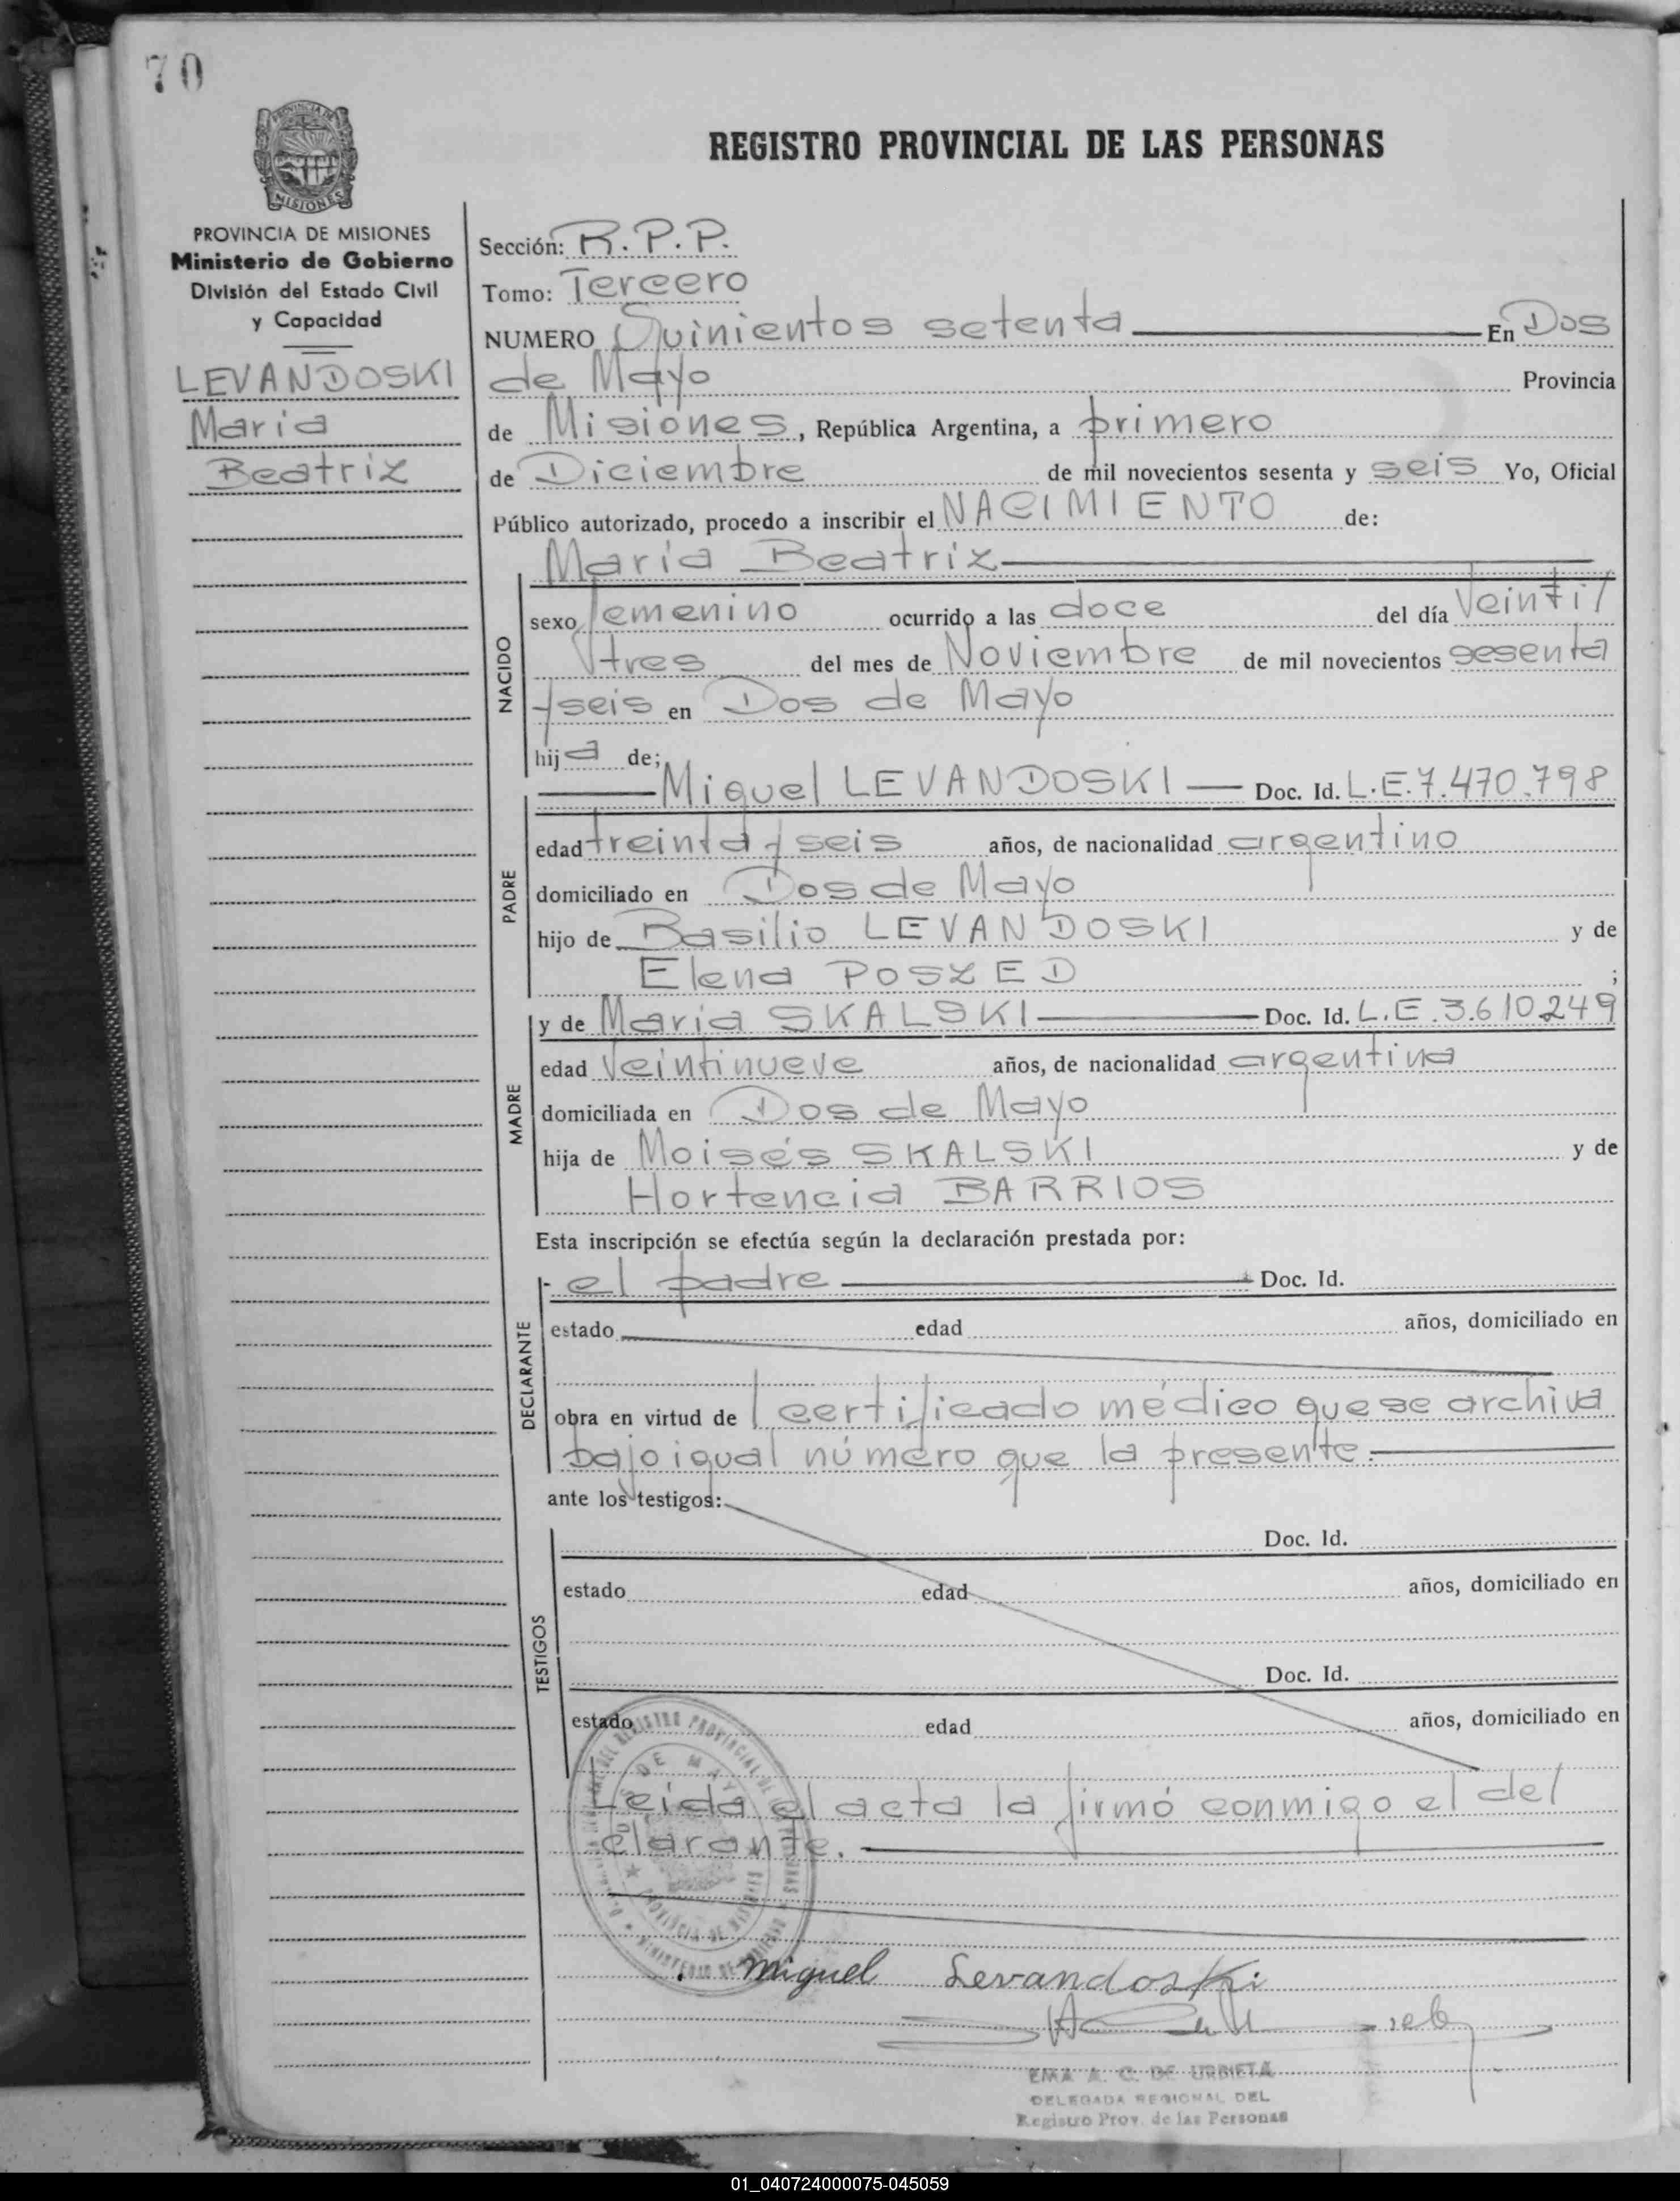 70
PROVINCIA DE
MISIONES
REGISTRO PROVINCIAL DE LAS PERSONAS
PROVINCIA DE MISIONES
Ministerio de Gobierno
División del Estado Civil
y Capacidad
LEVANDOSKI
Maria
Beatriz
Sección: R.P.P.
Tomo: Tercero
NUMERO Quinientos setenta En Dos
de Mayo Provincia
de Misiones, República Argentina, a primero
de Diciembre de mil novecientos sesenta y seis Yo, Oficial
Público autorizado, procedo a inscribir el NACIMIENTO de:
Maria Beatriz
NACIDO
sexo femenino ocurrido a las doce del día Veinti/
/tres del mes de Noviembre de mil novecientos sesenta
y seis en Dos de Mayo
hija de;
Miguel LEVANDOSKI Doc. Id. L.E.7.470.798
PADRE
edad treinta y seis años, de nacionalidad argentino
domiciliado en Dos de Mayo
hijo de Basilio LEVANDOSKI y de
Elena POSZED ;
MADRE
y de Maria SKALSKI Doc. Id. L.E.3.610.249
edad Veintinueve años, de nacionalidad argentina
domiciliada en Dos de Mayo
hija de Moisés SKALSKI y de
Hortencia BARRIOS
Esta inscripción se efectúa según la declaración prestada por:
DECLARANTE
el padre Doc. Id.
estado edad años, domiciliado en
obra en virtud de certificado médico que se archiva
bajo igual número que la presente.
ante los testigos:
TESTIGOS
Doc. Id.
estado edad años, domiciliado en
Doc. Id.
estado edad años, domiciliado en
Leída el acta la firmó conmigo el de/
clarante.
Miguel Levandoski
EMA A. C. DE URBIETA
DELEGADA REGIONAL DEL
Registro Prov. de las Personas
01_040724000075-045059